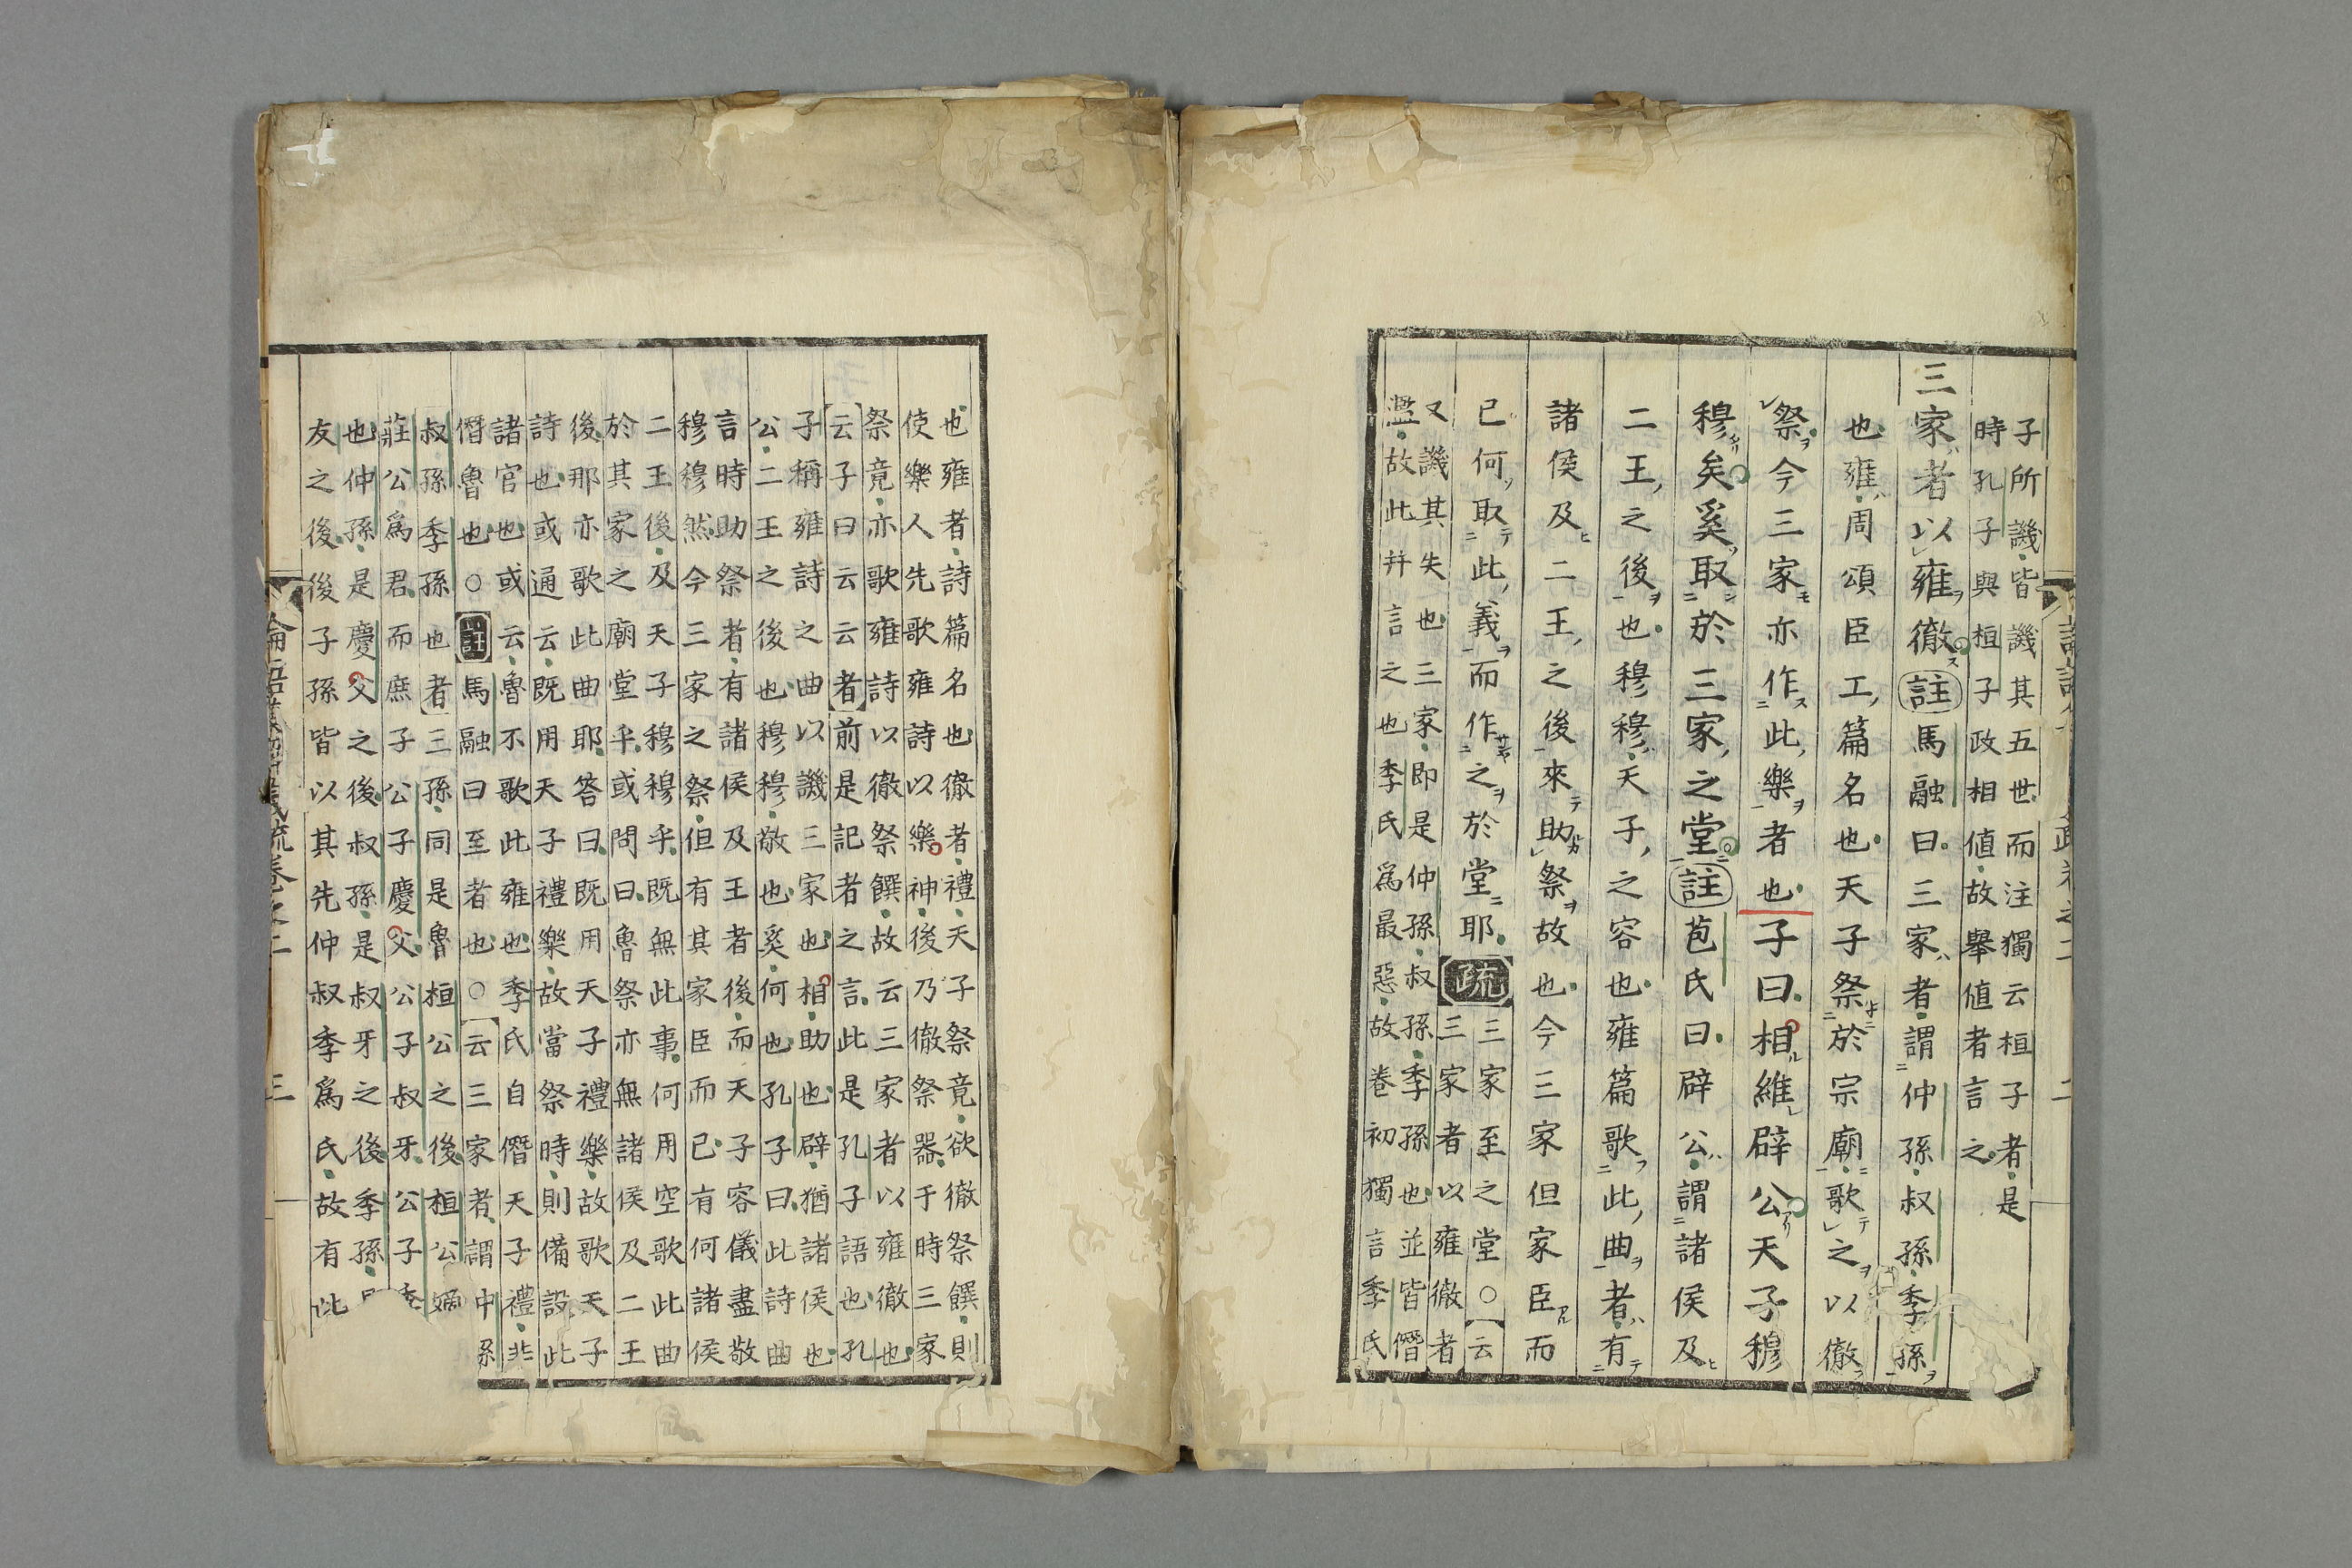 子所譏皆譏其五世而注獨云桓子者是
時孔子與桓子政相値故擧値者言之
三家者以雍徹註馬融曰三家者謂仲孫叔孫季孫
也雍周頌臣工篇名也天子祭於宗廟歌之以徹
祭今三家亦作此樂者也子曰相維辟公天子穆
穆矣奚取於三家之堂註苞氏曰辟公謂諸侯及
二王之後也穆穆天子之容也雍篇歌此曲者有
諸侯及二王之後來助祭故也今三家但家臣而
已何取此義而作之於堂耶疏
三家至之堂○云
三家者以雍徹者
又譏其失也三家即是仲孫叔孫季孫也並皆僭
濫故此幷言之也季氏爲最惡故卷初獨言季氏
也雍者詩篇名也徹者禮天子祭竟欲徹祭饌則
使樂人先歌雍詩以樂神後乃徹祭器于時三家
祭竟亦歌雍詩以徹祭饌故云三家者以雍徹也
云子曰云云者前是記者之言此是孔子語也孔
子稱雍詩之曲以譏三家也相助也辟猶諸侯也
公二王之後也穆穆敬也奚何也孔子曰此詩曲
言時助祭者有諸侯及王者後而天子容儀盡敬
穆穆然今三家之祭但有其家臣而已有何諸侯
二王後及天子穆穆乎既無此事何用空歌此曲
於其家之廟堂乎或問曰魯祭亦無諸侯及二王
後那亦歌此曲耶答曰既用天子禮樂故歌天子
詩也或通云既用天子禮樂故當祭時則備設此
諸官也或云魯不歌此雍也季氏自僭天子禮非
僭魯也○註馬融曰至者也○云三家者謂仲孫
叔孫季孫也者三孫同是魯桓公之後桓公嫡
莊公爲君而庶子公子慶父公子叔牙公子季
也仲孫是慶父之後叔孫是叔牙之後季孫
友之後後子孫皆以其先仲叔季爲氏故有此
論語義疏卷之二　三